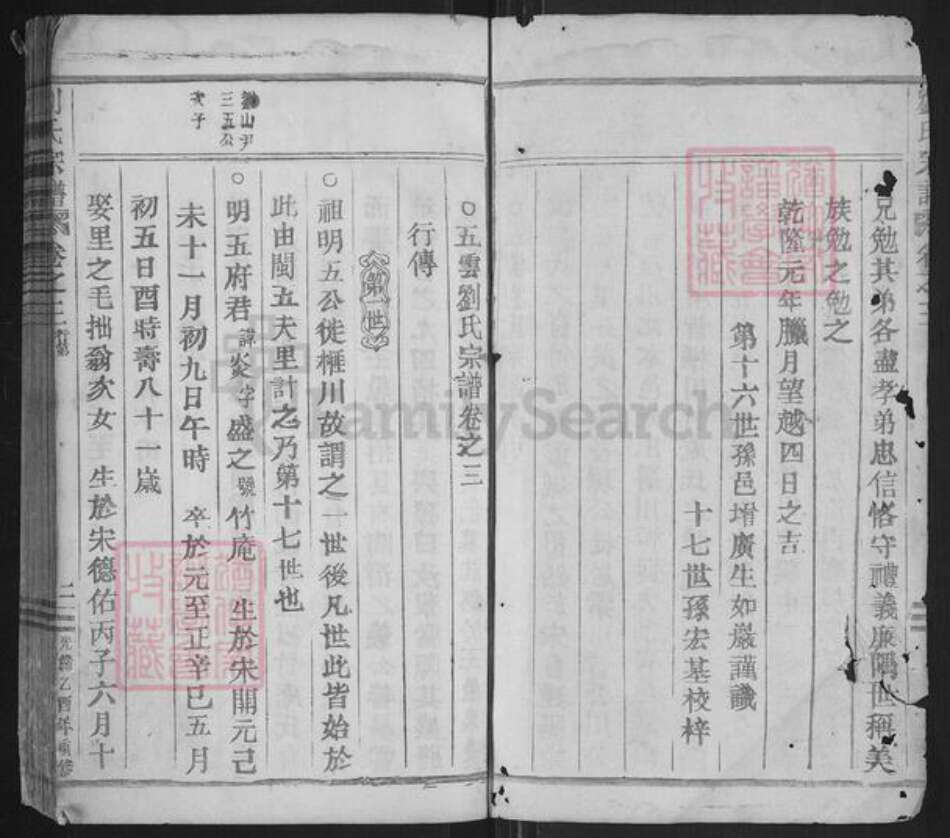 兄勉其弟各盡孝弟忠信恪守禮義廉隅世稱美
族勉之勉之
乾隆元年臘月望越四日之吉
第十六世孫邑增廣生如巖謹識
十七世孫宏基校梓
○五雲劉氏宗譜卷之三
行傳
第一世
○祖明五公徙椎川故謂之一世後凡世此皆始於
此由閩五夫里計之乃第十七世也
山尹
三五公
次子
○明五府君諱炎字盛之號竹庵 生於宋開元己
未十一月初九日午時 卒於元至正辛巳五月
初五日酉時壽八十一歲
娶里之毛拙翁次女 生於宋德佑丙子六月十
氏宗譜 卷之三 行第 二 光緒乙酉年重修
FamilySearch